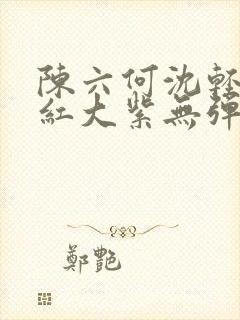 陳六何沈輕
紅大紫無彈
鄭艷